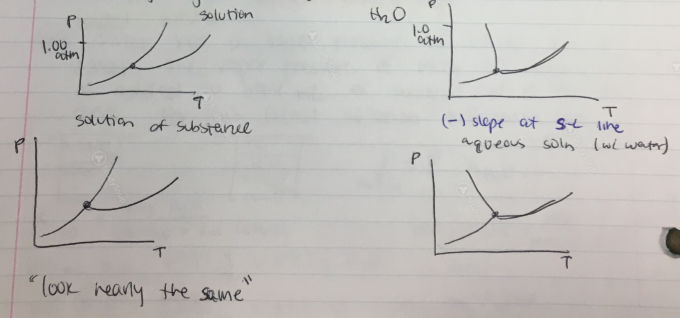 solution
P
1.00
atm
T
solution of substance
H2O
P
1.0
atm
T
(-) slope at s-l line
aqueous soln (w/ water)
P
T
"look nearly the same"
P
T